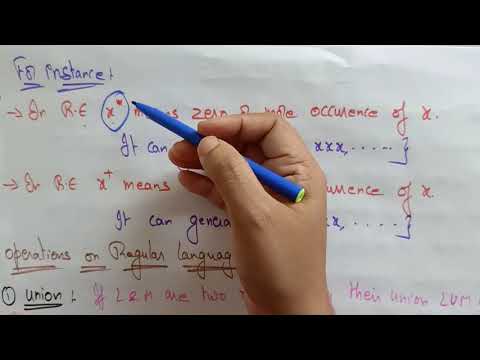 For instance :
→ In R.E x* means zero or more occurence of x.
It can xxx, ..... }
→ In R.E x⁺ means urrence of x.
It can genera xxx, ..... }
operations on Regular Languag
① union : If L & M are two their union L∪M